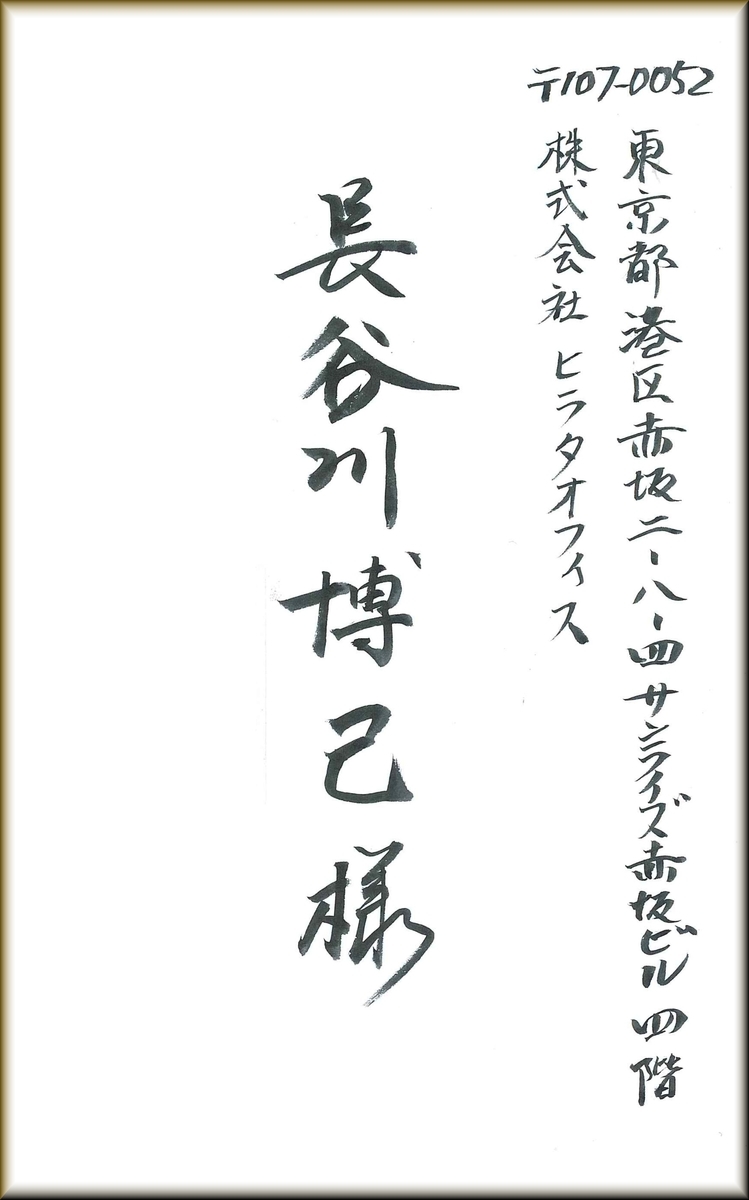 〒107-0052
東京都港区赤坂二-八-四サンライズ赤坂ビル 四階
株式会社 ヒラタオフィス
長谷川博己様